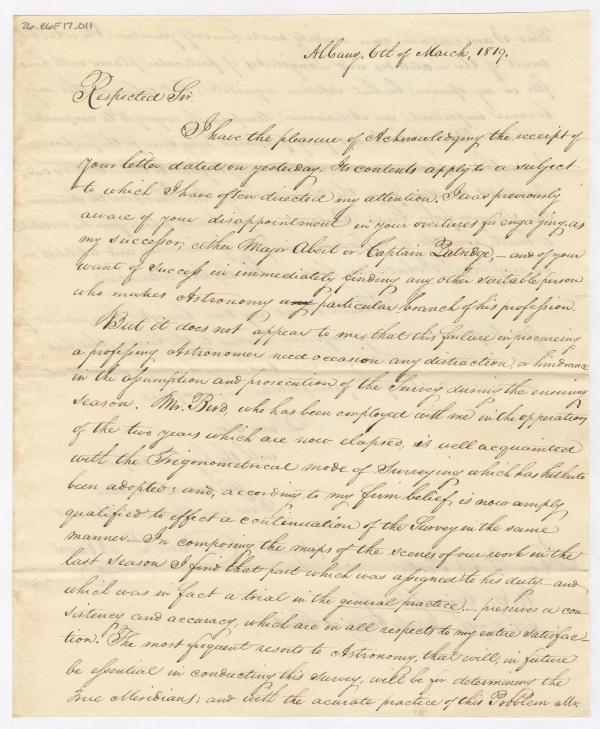 26.C6F17.011
Albany, 6th of March, 1819.
Respected Sir
I have the pleasure of Acknowledging the receipt of
your letter dated on yesterday. Its contents apply to a subject
to which I have often directed my attention. I was previously
aware of your disappointment in your overtures for engaging, as
my successor, either Major Abert or Captain Partridge, – and of your
want of success in immediately finding any other suitable person
who makes Astronomy any particular branch of his profession.
But it does not appear to me, that this failure in procuring
a professing Astronomer need occasion any distraction, or hindrance
in the assumption and prosecution of the Survey during the ensuing
season. Mr. Bird, who has been employed with me in the operation
of the two years which are now elapsed, is well acquainted
with the Trigonometrical mode of Surveying which has hitherto
been adopted; and, according to my firm belief, is now amply
qualified to effect a continuation of the Survey in the same
manner. – In composing the maps of the scenes of our work in the
last season I find that part which was assigned to his duty – and
which was in fact a trial in the general practice – preserves a con
sistency and accuracy, which are in all respects to my entire Satisfac-
tion. The most frequent resorts to Astronomy, that will, in future
be essential in conducting this Survey, will be for determining the
True Meridians; and with the acurate practice of this Problem Mr.